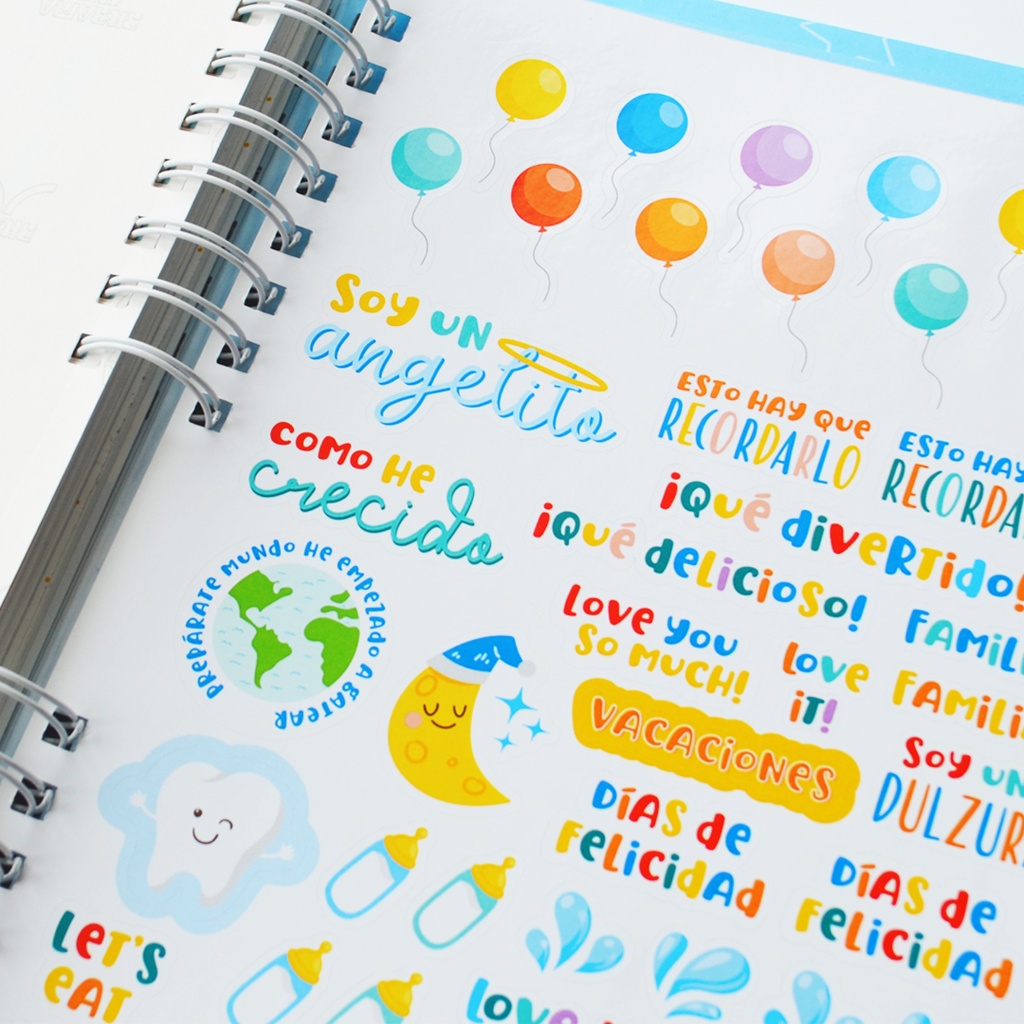 Soy un
angelito
como he
crecido
PREPÁRATE MUNDO HE EMPEZADO A GATEAR
ESTO HAY QUE
RECORDARLO
ESTO HAY
¡Qué divertido!
¡Qué delicioso!
Love you
so much!
Love
it!
VACACIONES
Soy un
DÍAS de
felicidad
DÍAS de
felicidad
LET'S
EAT
Love